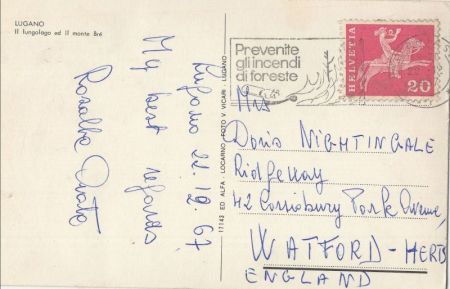 LUGANO
Il lungolago ed il monte Brè
Lugano 22.10.67
My best regards
Rosalba
17143 ED ALFA - LOCARNO - FOTO V VICARI LUGANO
Prevenite
gli incendi
di foreste
HELVETIA
20
Mrs
Doris NIGHTINGALE
Ridgeway
42 Cassiobury Park Avenue,
WATFORD - HERTS
ENGLAND